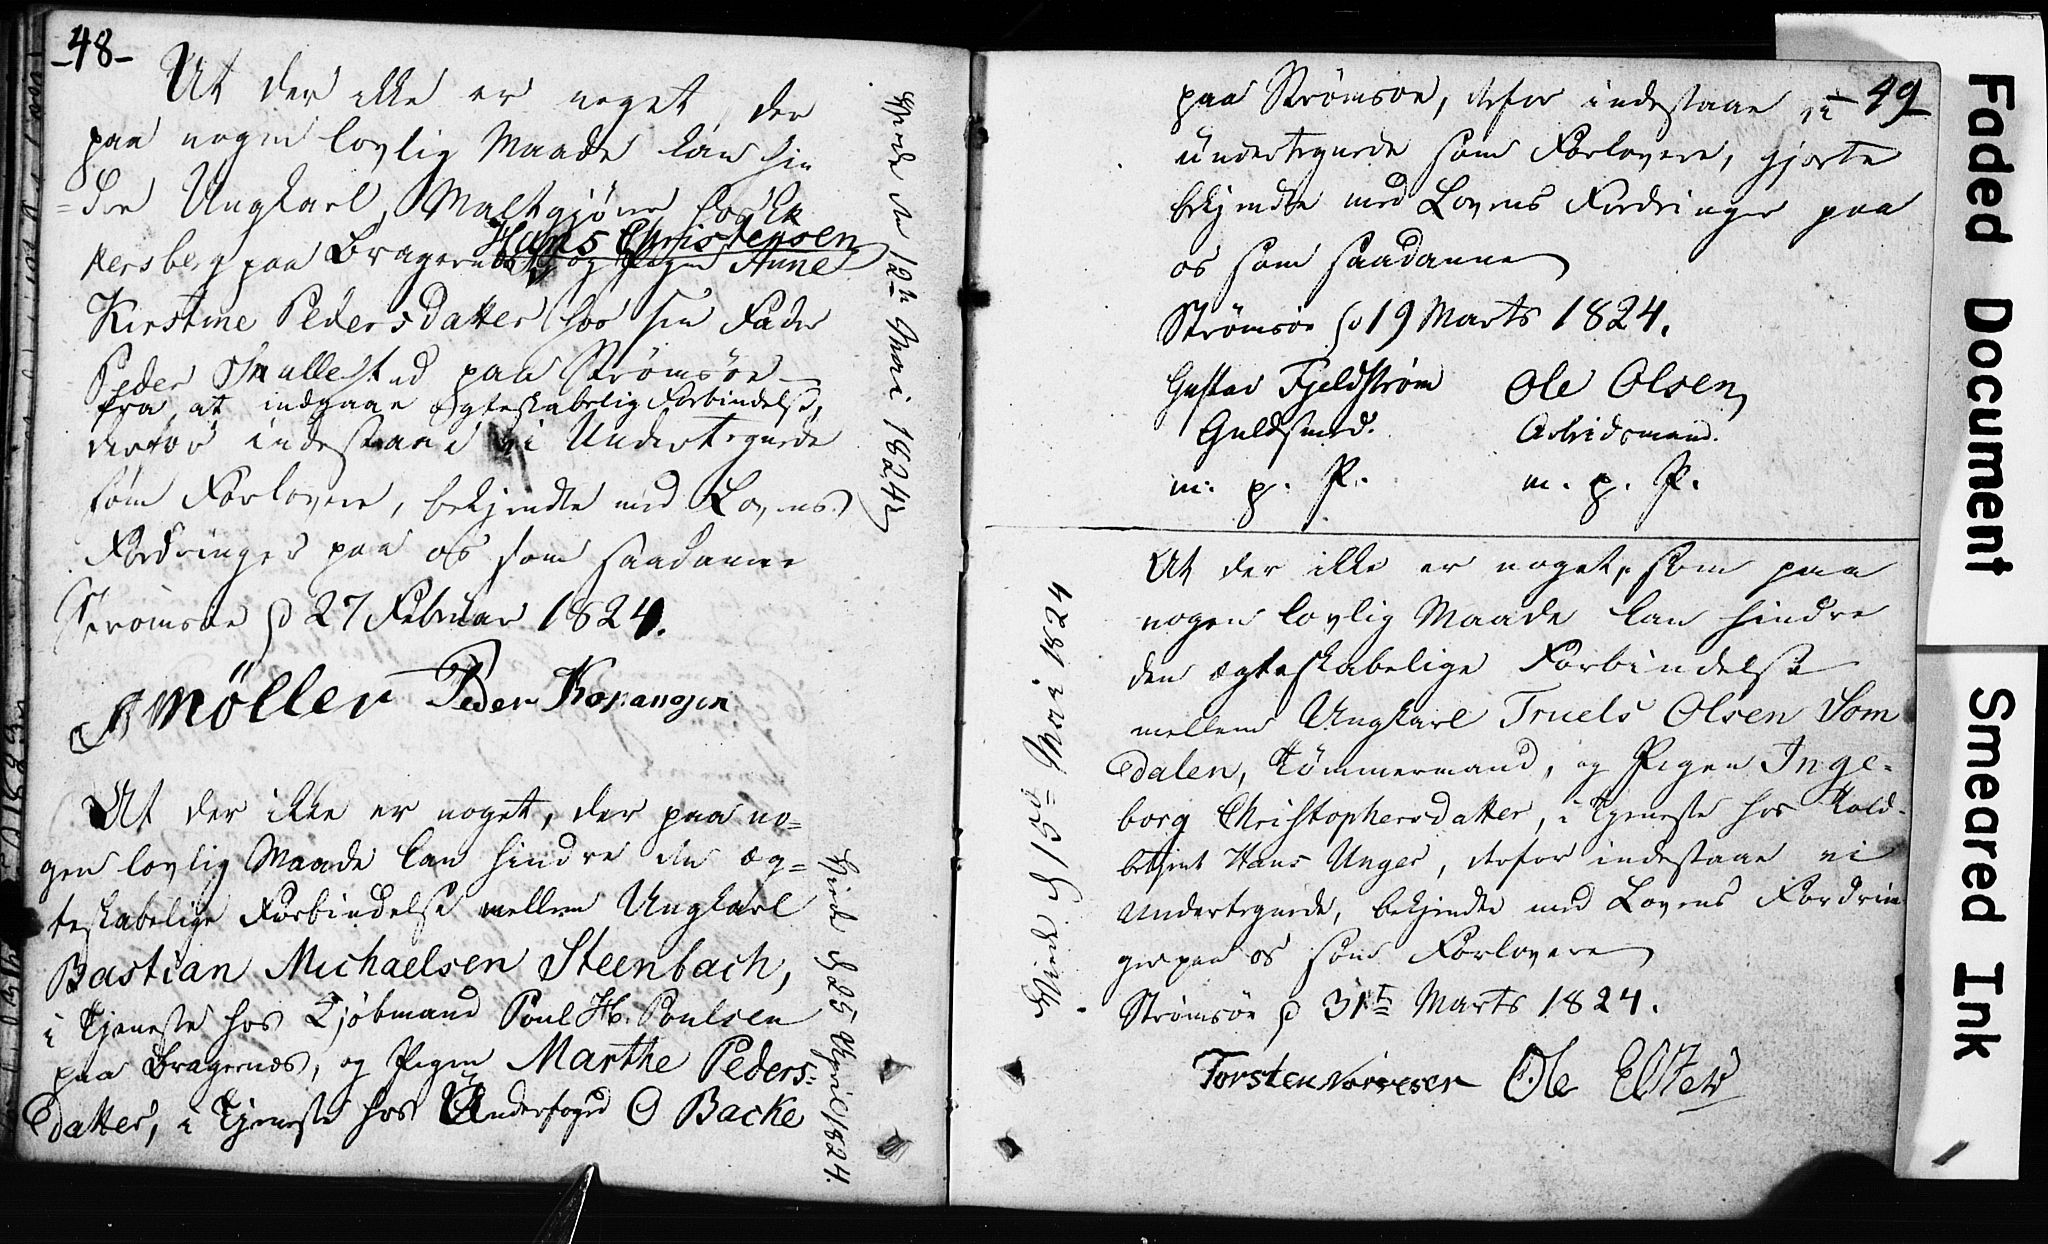 -48-
At der ikke er noget, der
paa nogen lovlig Maade kan hin
=dre Ungkarl, Maltgjører hos Ek
Hans Christensen
kersberg paa Bragernæs og Pigen Anne
Kirstine Pedersdatter hos sin Fader
Peder Smallestad paa Strømsøe
fra at indgaae Ægteskabelig Forbindelse,
derfor indestaae vi Undertegnede
som Forlovere, bekjendte med Lovens
Fordringer paa os som saadanne
Strømsøe d 27 Februar 1824.
Møller Peder
Viede den 12te Mai 1824
At der ikke er noget, der paa no=
gen lovlig Maade kan hindre den æg=
teskabelige Forbindelse mellem Ungkarl
Bastian Michaelsen Steenbach,
i Tjeneste hos Kjøbmand Poul H. Poulsen
paa Bragernæs, og Pigen Marthe Peders=
datter, i Tjeneste hos Underfoged O Backe
Viede d 25 April 1824.
49
paa Strømsøe, derfor indestaae vi
undertegnede som Forlovere, gjorte
bekjendte med Lovens Fordringer paa
os som saadanne
Strømsøe d 19 Marts 1824.
Gustav Fjeldstrøm Ole Olsen
Guldsmed. Arbeidsmand.
m. p. P. m. p. P.
At der ikke er noget, som paa
nogen lovlig Maade kan hindre
den ægteskabelige Forbindelse
mellem Ungkarl Truels Olsen Som
dalen, Tømmermand, og Pigen Inge=
borg Christophersdatter, i Tjeneste hos Told-
betjent Hans Unger, derfor indestaae vi
Undertegnede, bekjendte med Lovens Fordrin
ger paa os som Forlovere
Strømsøe d 31te Marts 1824.
Torsten Ole
Viede d 15de Mai 1824
Faded Document
Smeared Ink